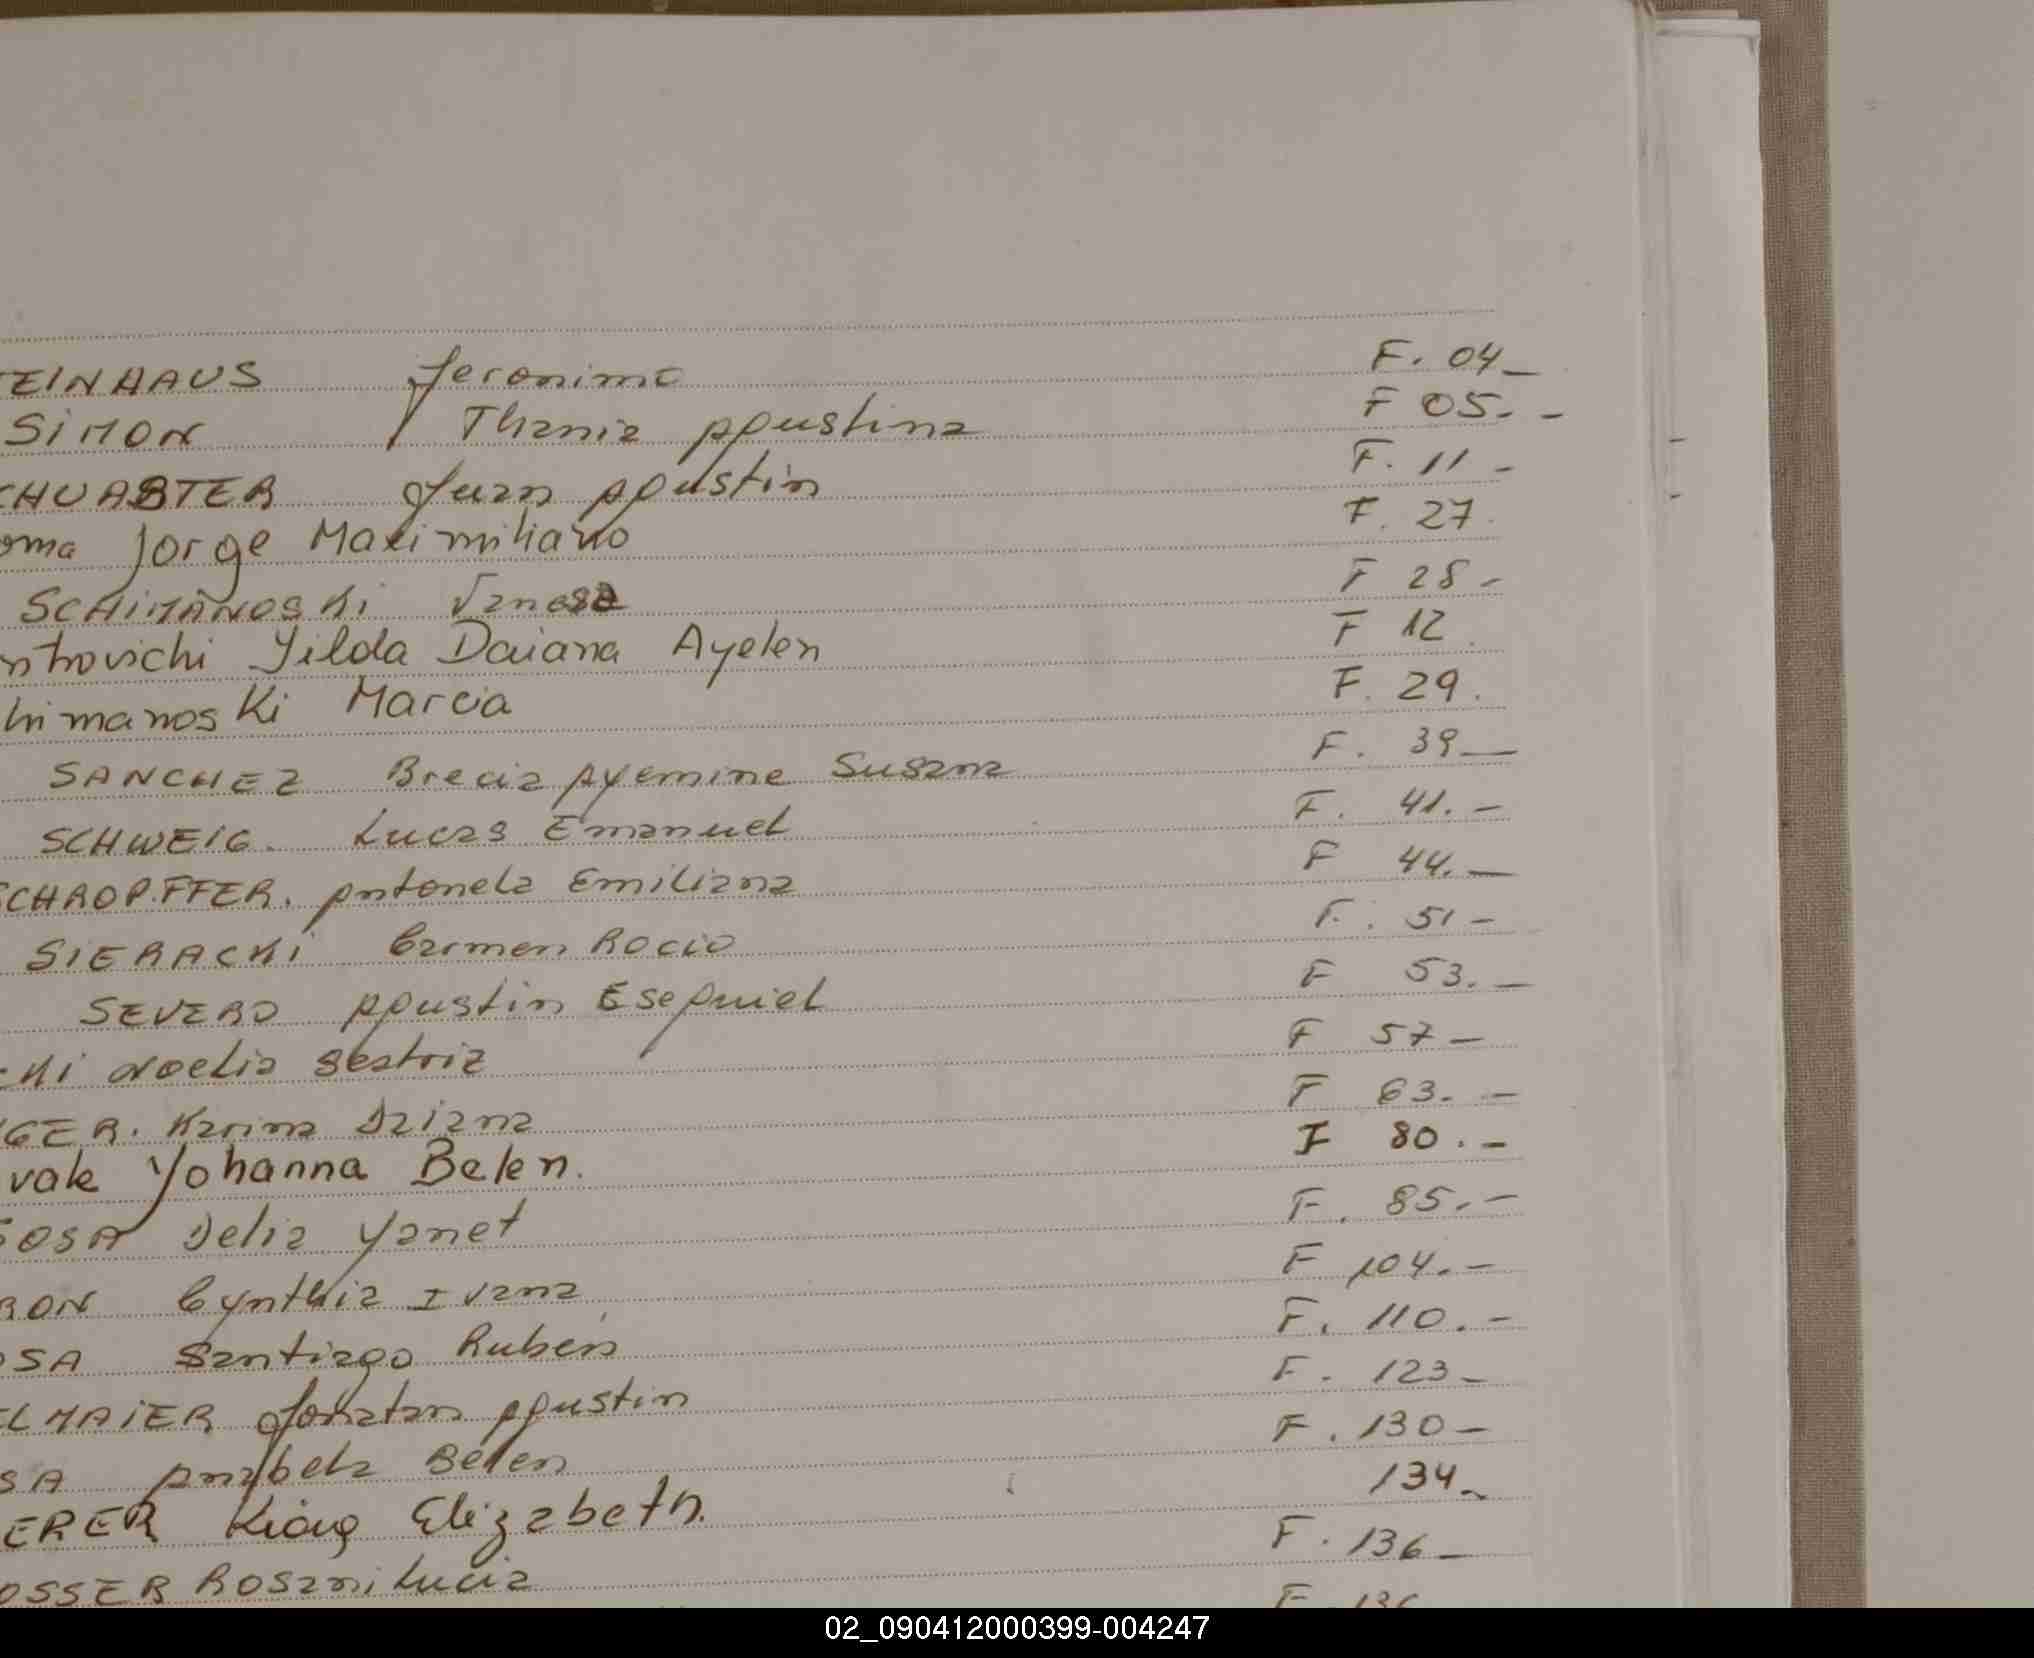 TEINHAUS Jeronimo F. 04_
SiMON Thania Agustina F 05. -
CHUABTER Juan Agustin F. 11 -
oma Jorge Maximiliano F. 27.
SCHiMANOSKi Vanesa F 28 -
ntrovichi Yilda Daiana Ayelen F 12.
himanoski Marcia F. 29.
SANCHEZ Brecia Ayemine Susana F. 39 —
SCHWEIG. Lucas Emanuel F. 41. -
SCHAOPFFER. Antonela Emiliana F 44. —
SiERACKi Carmen Rocio F. 51 -
SEVERO Agustin Esequiel F 53. —
CKi Noelia Beatriz F 57 -
GER. Karina Daiana F 63. -
vak Yohanna Belen. F 80. -
SOSA Delia Yanet F. 85. -
RON Cynthia Ivana F 104. -
OSA Santiago Ruben F. 110. -
ELMAiER Jonatan Agustin F. 123 -
SA Anabela Belen F. 130 -
ERER Elizabeth. 134. -
OSSER Rosani Lucia F. 136 -
F 136
02_090412000399-004247